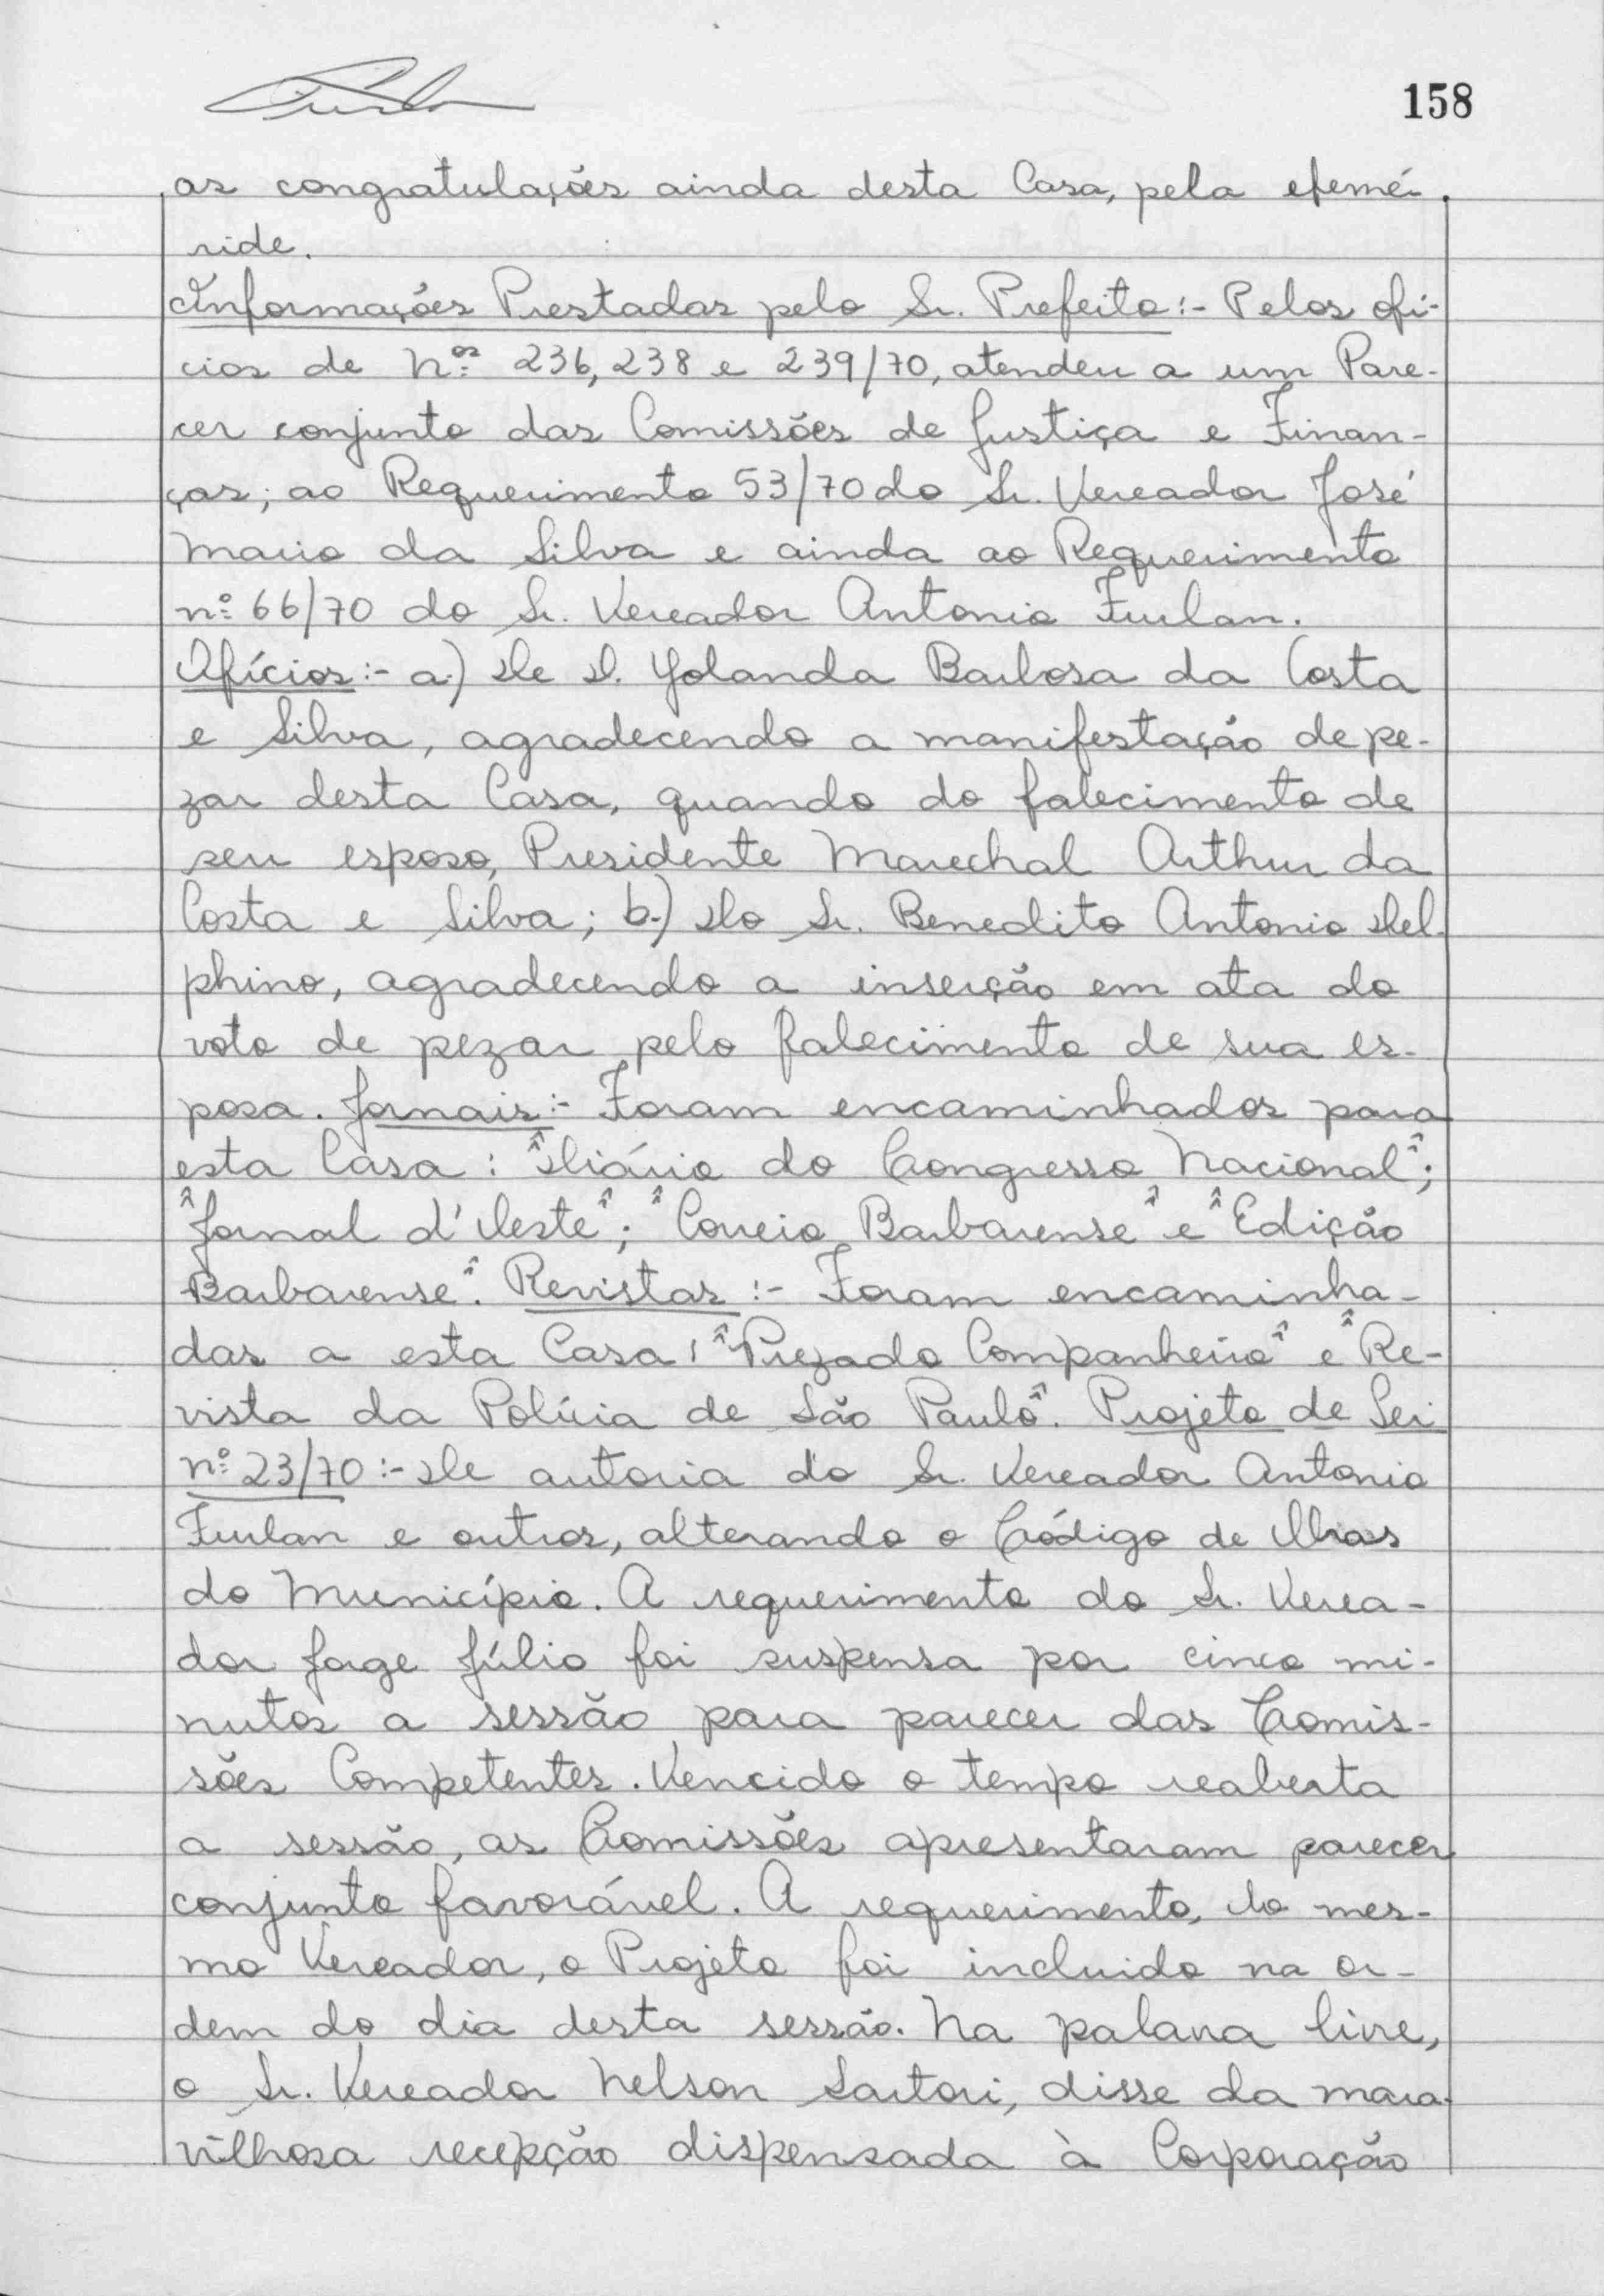 158
as congratulações ainda desta Casa, pela efemé-
ride.
Informações Prestadas pelo Sr. Prefeito:- Pelos ofí-
cios de Nos 236, 238 e 239/70, atendeu a um Pare-
cer conjunto das Comissões de Justiça e Finan-
ças; ao Requerimento 53/70 do Sr. Vereador José
Mario da Silva e ainda ao Requerimento
nº 66/70 do Sr. Vereador Antonio Furlan.
Ofícios:- a.) De D. Yolanda Barbosa da Costa
e Silva, agradecendo a manifestação de pe-
zar desta Casa, quando do falecimento de
seu esposo, Presidente Marechal Arthur da
Costa e Silva; b.) Do Sr. Benedito Antonio Del-
phino, agradecendo a inserção em ata do
voto de pezar pelo falecimento de sua es-
posa. Jornais:- Foram encaminhados para
esta Casa: "Diário do Congresso Nacional";
"Jornal d'Oeste"; "Correio Barbarense" e "Edição
Barbarense". Revistas:- Foram encaminha-
das a esta Casa: "Prezado Companheiro" e "Re-
vista da Polícia de São Paulo". Projeto de Lei
nº 23/70:- De autoria do Sr. Vereador Antonio
Furlan e outros, alterando o Código de Obras
do Município. A requerimento do Sr. Verea-
dor Jorge Júlio foi suspensa por cinco mi-
nutos a sessão para parecer das Comis-
sões Competentes. Vencido o tempo reaberta
a sessão, as Comissões apresentaram parecer
conjunto favorável. A requerimento, do mes-
mo Vereador, o Projeto foi incluido na or-
dem do dia desta sessão. Na palavra livre,
o Sr. Vereador Nelson Sartori, disse da mara-
vilhosa recepção dispensada à Corporação